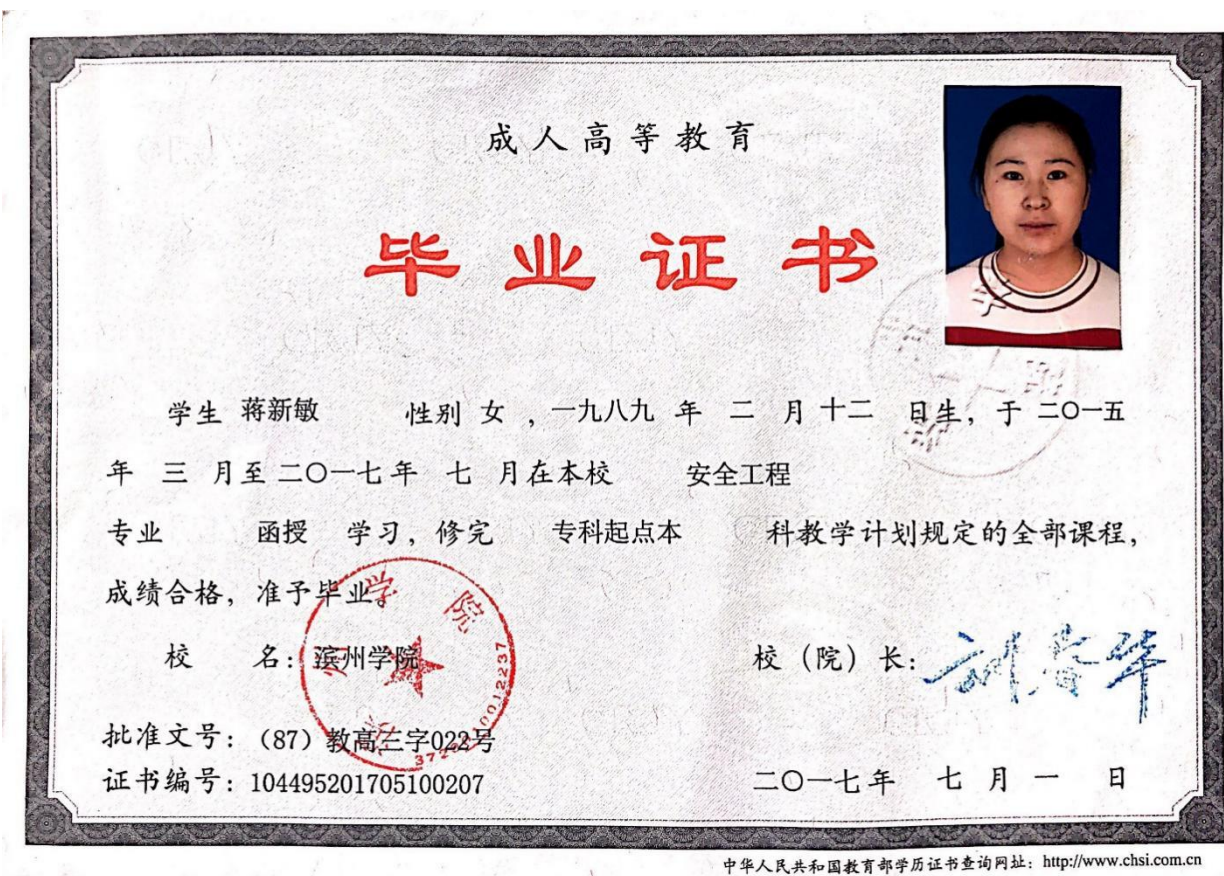 成人高等教育
毕业证书
学生 蒋新敏 性别 女 ，一九八九 年 二 月 十二 日生，于 二〇一五
年 三 月至 二〇一七 年 七 月在本校 安全工程
专业 函授 学习，修完 专科起点本 科教学计划规定的全部课程，
成绩合格，准予毕业。
校 名：滨州学院
校（院）长：
批准文号：（87）教高三字022号
证书编号：104495201705100207
二〇一七 年 七 月 一 日
中华人民共和国教育部学历证书查询网址：http://www.chsi.com.cn